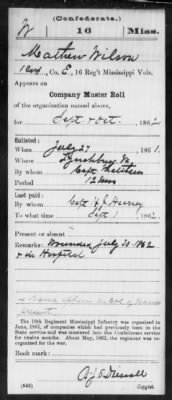 (Confederate.)
W 16 Miss.
Mathew Wilson
, Co. E, 16 Reg't Mississippi Vols.
Appears on
Company Muster Roll
of the organization named above,
for Sept & Oct, 1862
Enlisted:
When July 27, 1861
Where Lynchburg Va
By whom Capt
Period 12 mos
Last paid:
By whom Capt J. J.
To what time Sept 1, 186
Present or absent
Remarks: Wounded July 30 1862
& in Hospital
The 16th Regiment Mississippi Infantry was organized in
June, 1861, of companies which had previously been in the
State service and was mustered into the Confederate service
for twelve months. About May, 1862, the regiment was re-
organized for the war.
Book mark:
(642)
Copyist.